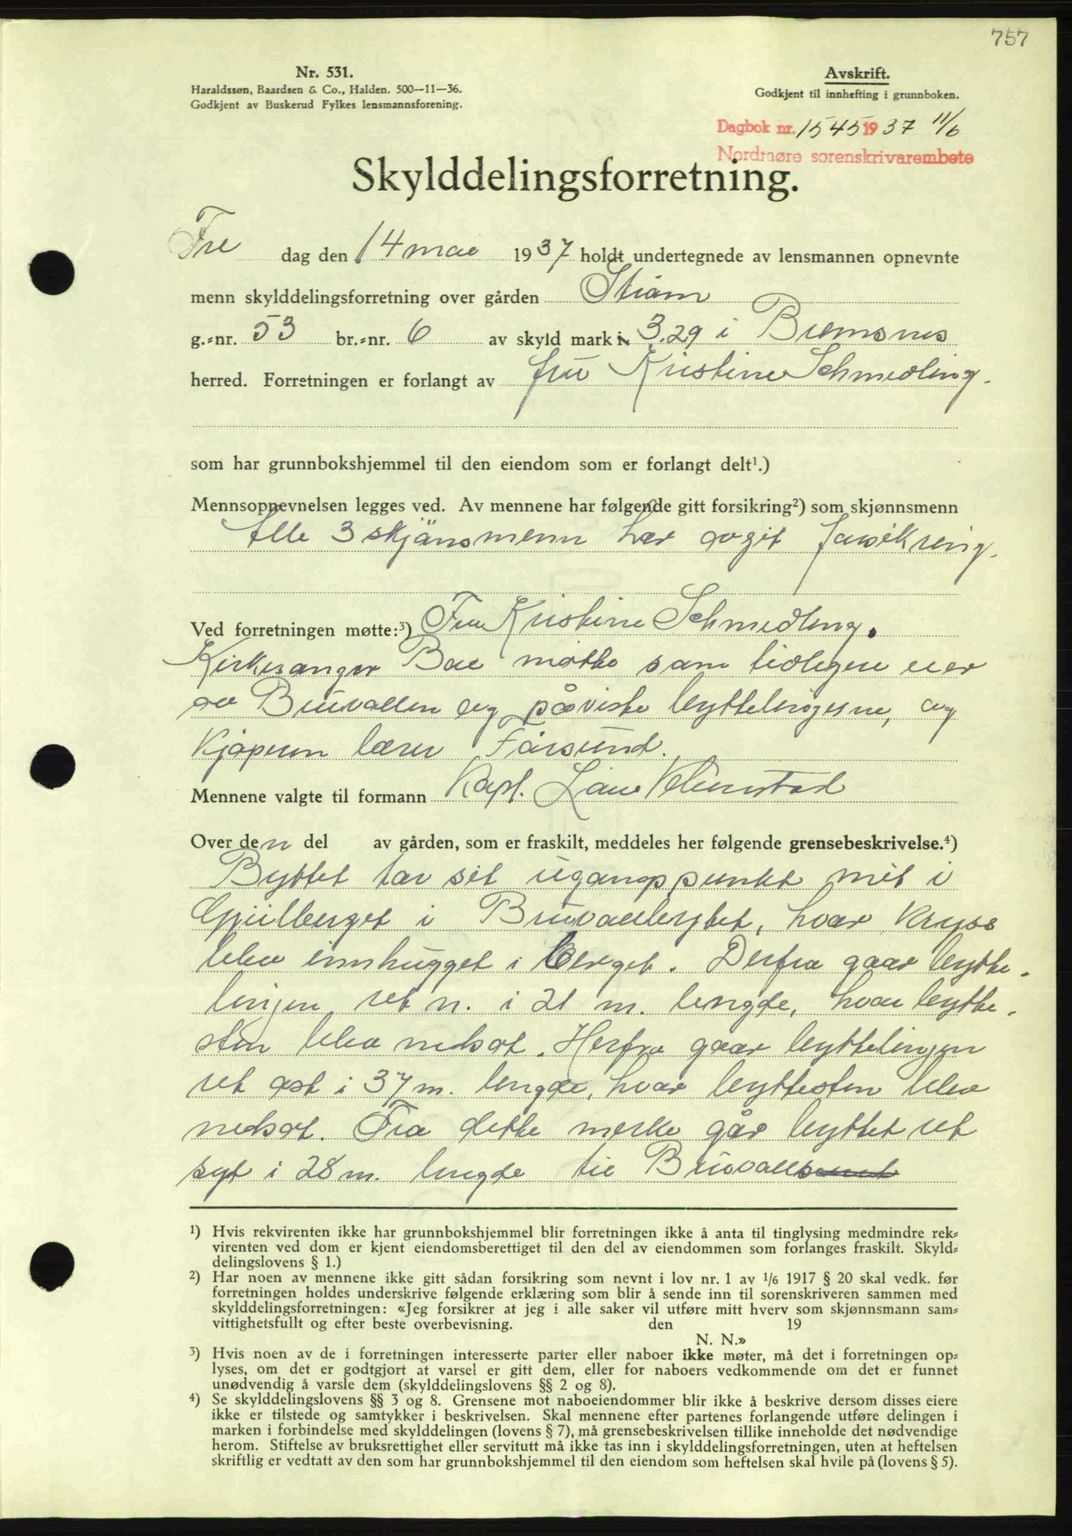 757
Nr. 531.
Haraldssøn, Baardsen & Co., Halden. 500—11—36.
Godkjent av Buskerud Fylkes lensmannsforening.
Avskrift.
Godkjent til innhefting i grunnboken.
Dagbok nr. 1545 1937 11/6
Nordmøre sorenskrivarembete
Skylddelingsforretning.
Fre dag den 14 mai 1937 holdt undertegnede av lensmannen opnevnte
menn skylddelingsforretning over gården
g.-nr. 53 br.-nr. 6 av skyld mark 3.29 i Bremsnes
herred. Forretningen er forlangt av fru Kristine Schmedling.
som har grunnbokshjemmel til den eiendom som er forlangt delt¹.)
Mennsopnevnelsen legges ved. Av mennene har følgende gitt forsikring²) som skjønnsmenn
Alle 3 skjönsmenn har avgit forsikring.
Ved forretningen møtte:³) Fru Kristine Schmedling.
Kirkesanger Boe møtte som tidligere eier
av Bruvollen og påviste byttelingerne, og
Kjøperen lærer Farsund.
Mennene valgte til formann Kapt. Lars
Over den del av gården, som er fraskilt, meddeles her følgende grensebeskrivelse.⁴)
Byttet tar sit ugangspunkt mit i
i Bruvollbytet, hvor kryss
blev innhugget i Berget. Derfra gaar bytte-
linjen ret n. i 21 m. lengde, hvor bytte-
sten blev nedsat. Herfra gaar byttelinjen
ret øst i 37 m. lengde, hvor byttesten blev
nedsat. Fra dette merke går byttet ret
syt i 28 m. lengde til
¹) Hvis rekvirenten ikke har grunnbokshjemmel blir forretningen ikke å anta til tinglysing medmindre rek-
virenten ved dom er kjent eiendomsberettiget til den del av eiendommen som forlanges fraskilt. Skyld-
delingslovens § 1.)
²) Har noen av mennene ikke gitt sådan forsikring som nevnt i lov nr. 1 av 1/6 1917 § 20 skal vedk. før
forretningen holdes underskrive følgende erklæring som blir å sende inn til sorenskriveren sammen med
skylddelingsforretningen: «Jeg forsikrer at jeg i alle saker vil utføre mitt hverv som skjønnsmann sam-
vittighetsfullt og efter beste overbevisning. den 19
N. N.»
³) Hvis noen av de i forretningen interesserte parter eller naboer ikke møter, må det i forretningen op-
lyses, om det er godtgjort at varsel er gitt dem, eller for naboers vedkommende om det er funnet
unødvendig å varsle dem (skylddelingslovens §§ 2 og 8).
⁴) Se skylddelingslovens §§ 3 og 8. Grensene mot naboeiendommer blir ikke å beskrive dersom disses eiere
ikke er tilstede og samtykker i beskrivelsen. Skal mennene efter partenes forlangende utføre delingen i
marken i forbindelse med skylddelingen (lovens § 7), må grensebeskrivelsen tillike inneholde det nødvendige
herom. Stiftelse av bruksrettighet eller servitutt må ikke tas inn i skylddelingsforretningen, uten at heftelsen
skriftlig er vedtatt av den som har grunnbokshjemmel til den eiendom som heftelsen skal hvile på (lovens § 5).